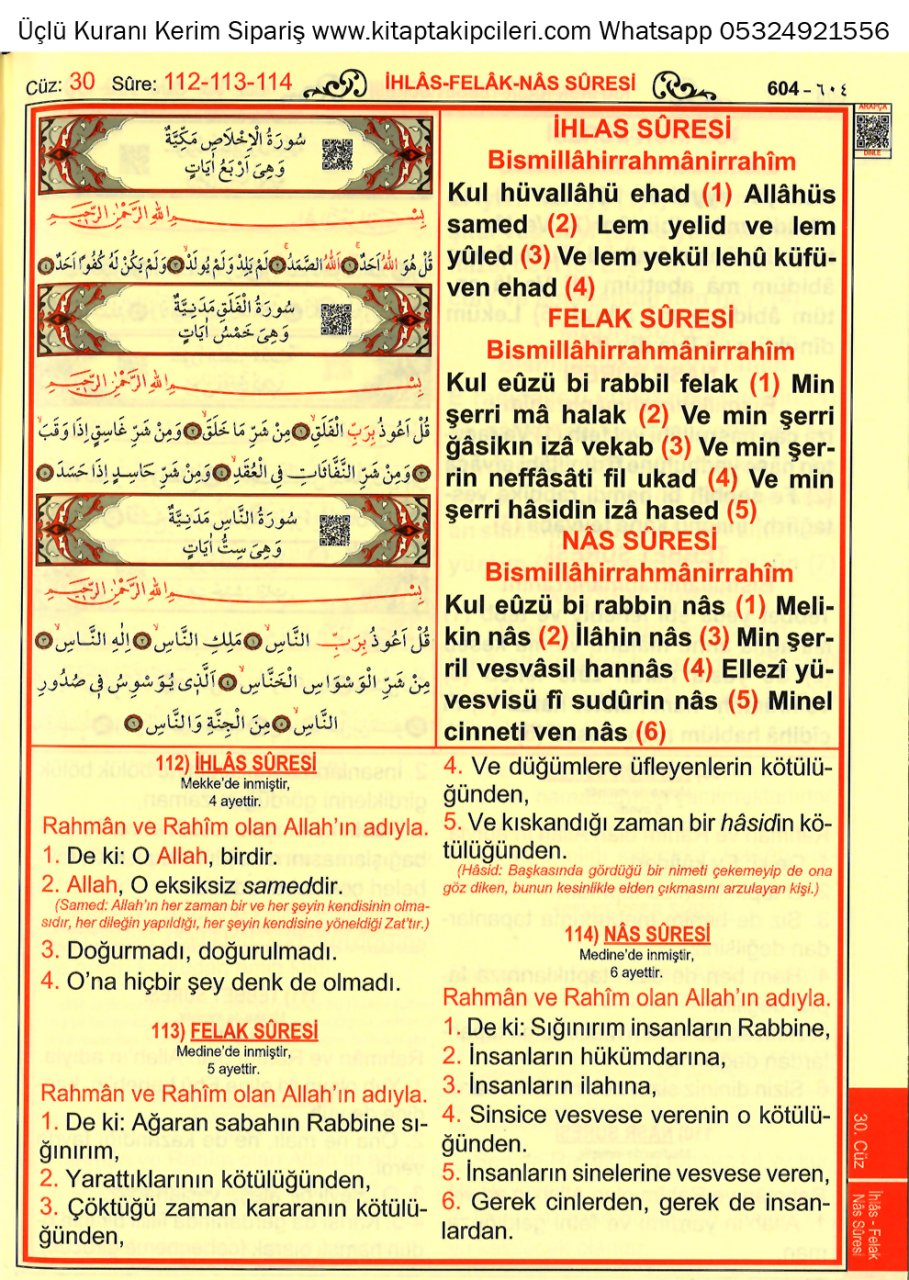 Üçlü Kuranı Kerim Sipariş www.kitaptakipcileri.com Whatsapp 05324921556
Cüz: 30 Sûre: 112-113-114 İHLÂS-FELÂK-NÂS SÛRESİ 604 - ٦٠٤
ARAPÇA
DİNLE
سُورَةُ الْاِخْلَاصِ مَكِّيَّةٌ
وَهِىَ اَرْبَعُ اٰيَاتٍ
بِسْمِ اللهِ الرَّحْمٰنِ الرَّحِيمِ
قُلْ هُوَ اللهُ اَحَدٌ ١ اَللهُ الصَّمَدُ ٢ لَمْ يَلِدْ وَلَمْ يُولَدْ ٣ وَلَمْ يَكُنْ لَهُ كُفُوًا اَحَدٌ ٤
سُورَةُ الْفَلَقِ مَدَنِيَّةٌ
وَهِىَ خَمْسُ اٰيَاتٍ
بِسْمِ اللهِ الرَّحْمٰنِ الرَّحِيمِ
قُلْ اَعُوذُ بِرَبِّ الْفَلَقِ ١ مِنْ شَرِّ مَا خَلَقَ ٢ وَمِنْ شَرِّ غَاسِقٍ اِذَا وَقَبَ
٣ وَمِنْ شَرِّ النَّفَّاثَاتِ فِى الْعُقَدِ ٤ وَمِنْ شَرِّ حَاسِدٍ اِذَا حَسَدَ ٥
سُورَةُ النَّاسِ مَدَنِيَّةٌ
وَهِىَ سِتُّ اٰيَاتٍ
بِسْمِ اللهِ الرَّحْمٰنِ الرَّحِيمِ
قُلْ اَعُوذُ بِرَبِّ النَّاسِ ١ مَلِكِ النَّاسِ ٢ اِلٰهِ النَّاسِ ٣
مِنْ شَرِّ الْوَسْوَاسِ الْخَنَّاسِ ٤ اَلَّذٖى يُوَسْوِسُ فٖى صُدُورِ
النَّاسِ ٥ مِنَ الْجِنَّةِ وَالنَّاسِ ٦
İHLAS SÛRESİ
Bismillâhirrahmânirrahîm
Kul hüvallâhü ehad (1) Allâhüs
samed (2) Lem yelid ve lem
yûled (3) Ve lem yekül lehû küfü-
ven ehad (4)
FELAK SÛRESİ
Bismillâhirrahmânirrahîm
Kul eûzü bi rabbil felak (1) Min
şerri mâ halak (2) Ve min şerri
ğâsikın izâ vekab (3) Ve min şer-
rin neffâsâti fil ukad (4) Ve min
şerri hâsidin izâ hased (5)
NÂS SÛRESİ
Bismillâhirrahmânirrahîm
Kul eûzü bi rabbin nâs (1) Meli-
kin nâs (2) İlâhin nâs (3) Min şer-
ril vesvâsil hannâs (4) Ellezî yü-
vesvisü fî sudûrin nâs (5) Minel
cinneti ven nâs (6)
112) İHLÂS SÛRESİ
Mekke'de inmiştir,
4 ayettir.
Rahmân ve Rahîm olan Allah'ın adıyla.
1. De ki: O Allah, birdir.
2. Allah, O eksiksiz sameddir.
(Samed: Allah'ın her zaman bir ve her şeyin kendisinin olma-
sıdır, her dileğin yapıldığı, her şeyin kendisine yöneldiği Zat'tır.)
3. Doğurmadı, doğurulmadı.
4. O'na hiçbir şey denk de olmadı.
113) FELAK SÛRESİ
Medine'de inmiştir,
5 ayettir.
Rahmân ve Rahîm olan Allah'ın adıyla.
1. De ki: Ağaran sabahın Rabbine sı-
ğınırım,
2. Yarattıklarının kötülüğünden,
3. Çöktüğü zaman kararanın kötülü-
ğünden,
4. Ve düğümlere üfleyenlerin kötülü-
ğünden,
5. Ve kıskandığı zaman bir hâsidin kö-
tülüğünden.
(Hâsid: Başkasında gördüğü bir nimeti çekemeyip de ona
göz diken, bunun kesinlikle elden çıkmasını arzulayan kişi.)
114) NÂS SÛRESİ
Medine'de inmiştir,
6 ayettir.
Rahmân ve Rahîm olan Allah'ın adıyla.
1. De ki: Sığınırım insanların Rabbine,
2. İnsanların hükümdarına,
3. İnsanların ilahına,
4. Sinsice vesvese verenin o kötülü-
ğünden.
5. İnsanların sinelerine vesvese veren,
6. Gerek cinlerden, gerek de insan-
lardan.
30. Cüz
İhlâs - Felak
Nâs Sûresi